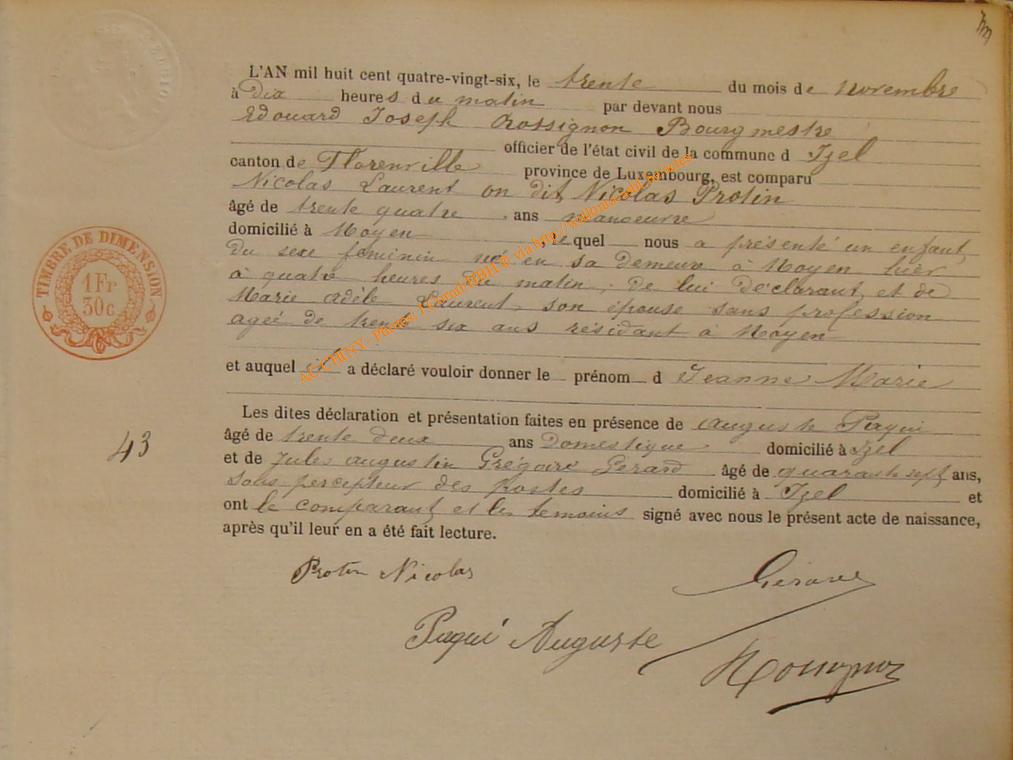 L'AN mil huit cent quatre-vingt-six, le trente du mois de novembre
à Dix heures du matin par devant nous
Edouard Joseph Rossignon Bourgmestre
officier de l'état civil de la commune d Izel
canton de Florenville province de Luxembourg, est comparu
Nicolas Laurent on dit Nicolas Protin
âgé de trente quatre ans manoeuvre
domicilié à Moyen lequel nous a présenté un enfant
du sexe féminin né en sa demeure à Moyen hier
à quatre heures du matin, de lui déclarant et de
Marie adèle Laurent, son épouse sans profession
ageé de trente six ans résidant à Moyen
et auquel il a déclaré vouloir donner le prénom d Jeanne Marie
Les dites déclaration et présentation faites en présence de auguste Paqui
âgé de trente deux ans Domestique domicilié à Izel
et de Jules augustin Grégoire Gerard âgé de quarante sept ans,
sous percepteur des postes domicilié à Izel et
ont le comparant et les temoins signé avec nous le présent acte de naissance,
après qu'il leur en a été fait lecture.
TIMBRE DE DIMENSION
1 Fr
30c
43
Protin Nicolas
Gérard
Paqui Auguste
Rossignon